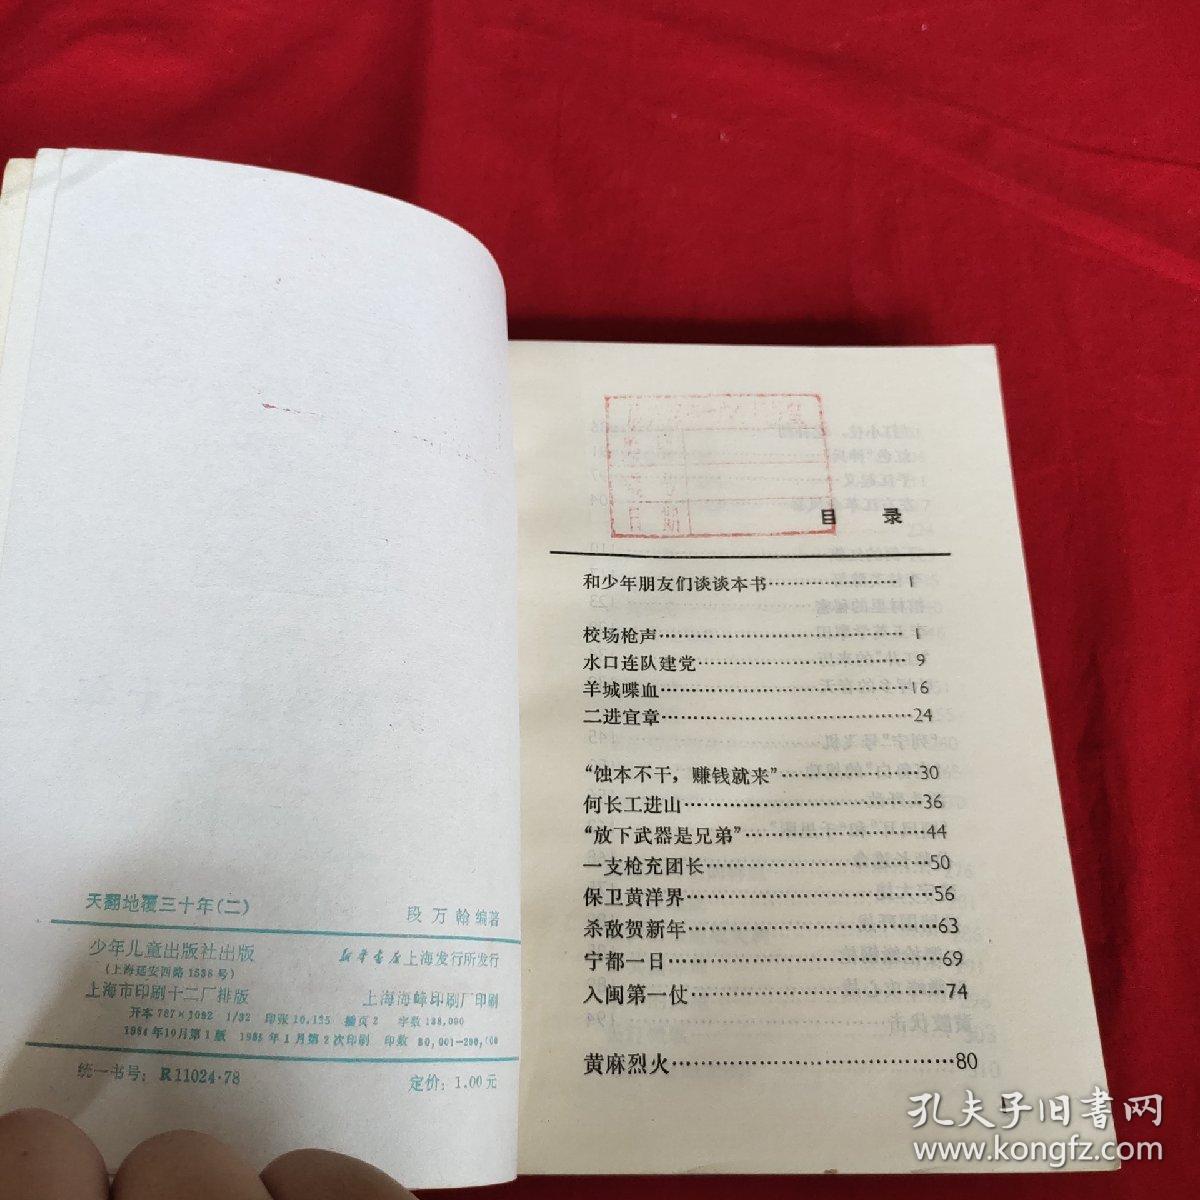 天翻地覆三十年(二)
段万翰 编著
少年儿童出版社出版
(上海延安西路1538号)
新华书店上海发行所发行
上海市印刷十二厂排版
上海海峰印刷厂印刷
开本 787×1092 1/32 印张 10.125 插页 2 字数 138,000
1984年10月第1版 1985年1月第2次印刷
统一书号：R11024·78
定价：1.00元
目 录
和少年朋友们谈谈本书…………………1
校场枪声…………………………………1
水口连队建党……………………………9
羊城喋血…………………………………16
二进宜章…………………………………24
“蚀本不干，赚钱就来”…………………30
何长工进山………………………………36
“放下武器是兄弟”………………………44
一支枪充团长……………………………50
保卫黄洋界………………………………56
杀敌贺新年………………………………63
宁都一日…………………………………69
入闽第一仗………………………………74
黄麻烈火…………………………………80
1
孔夫子旧书网
www.kongfz.com